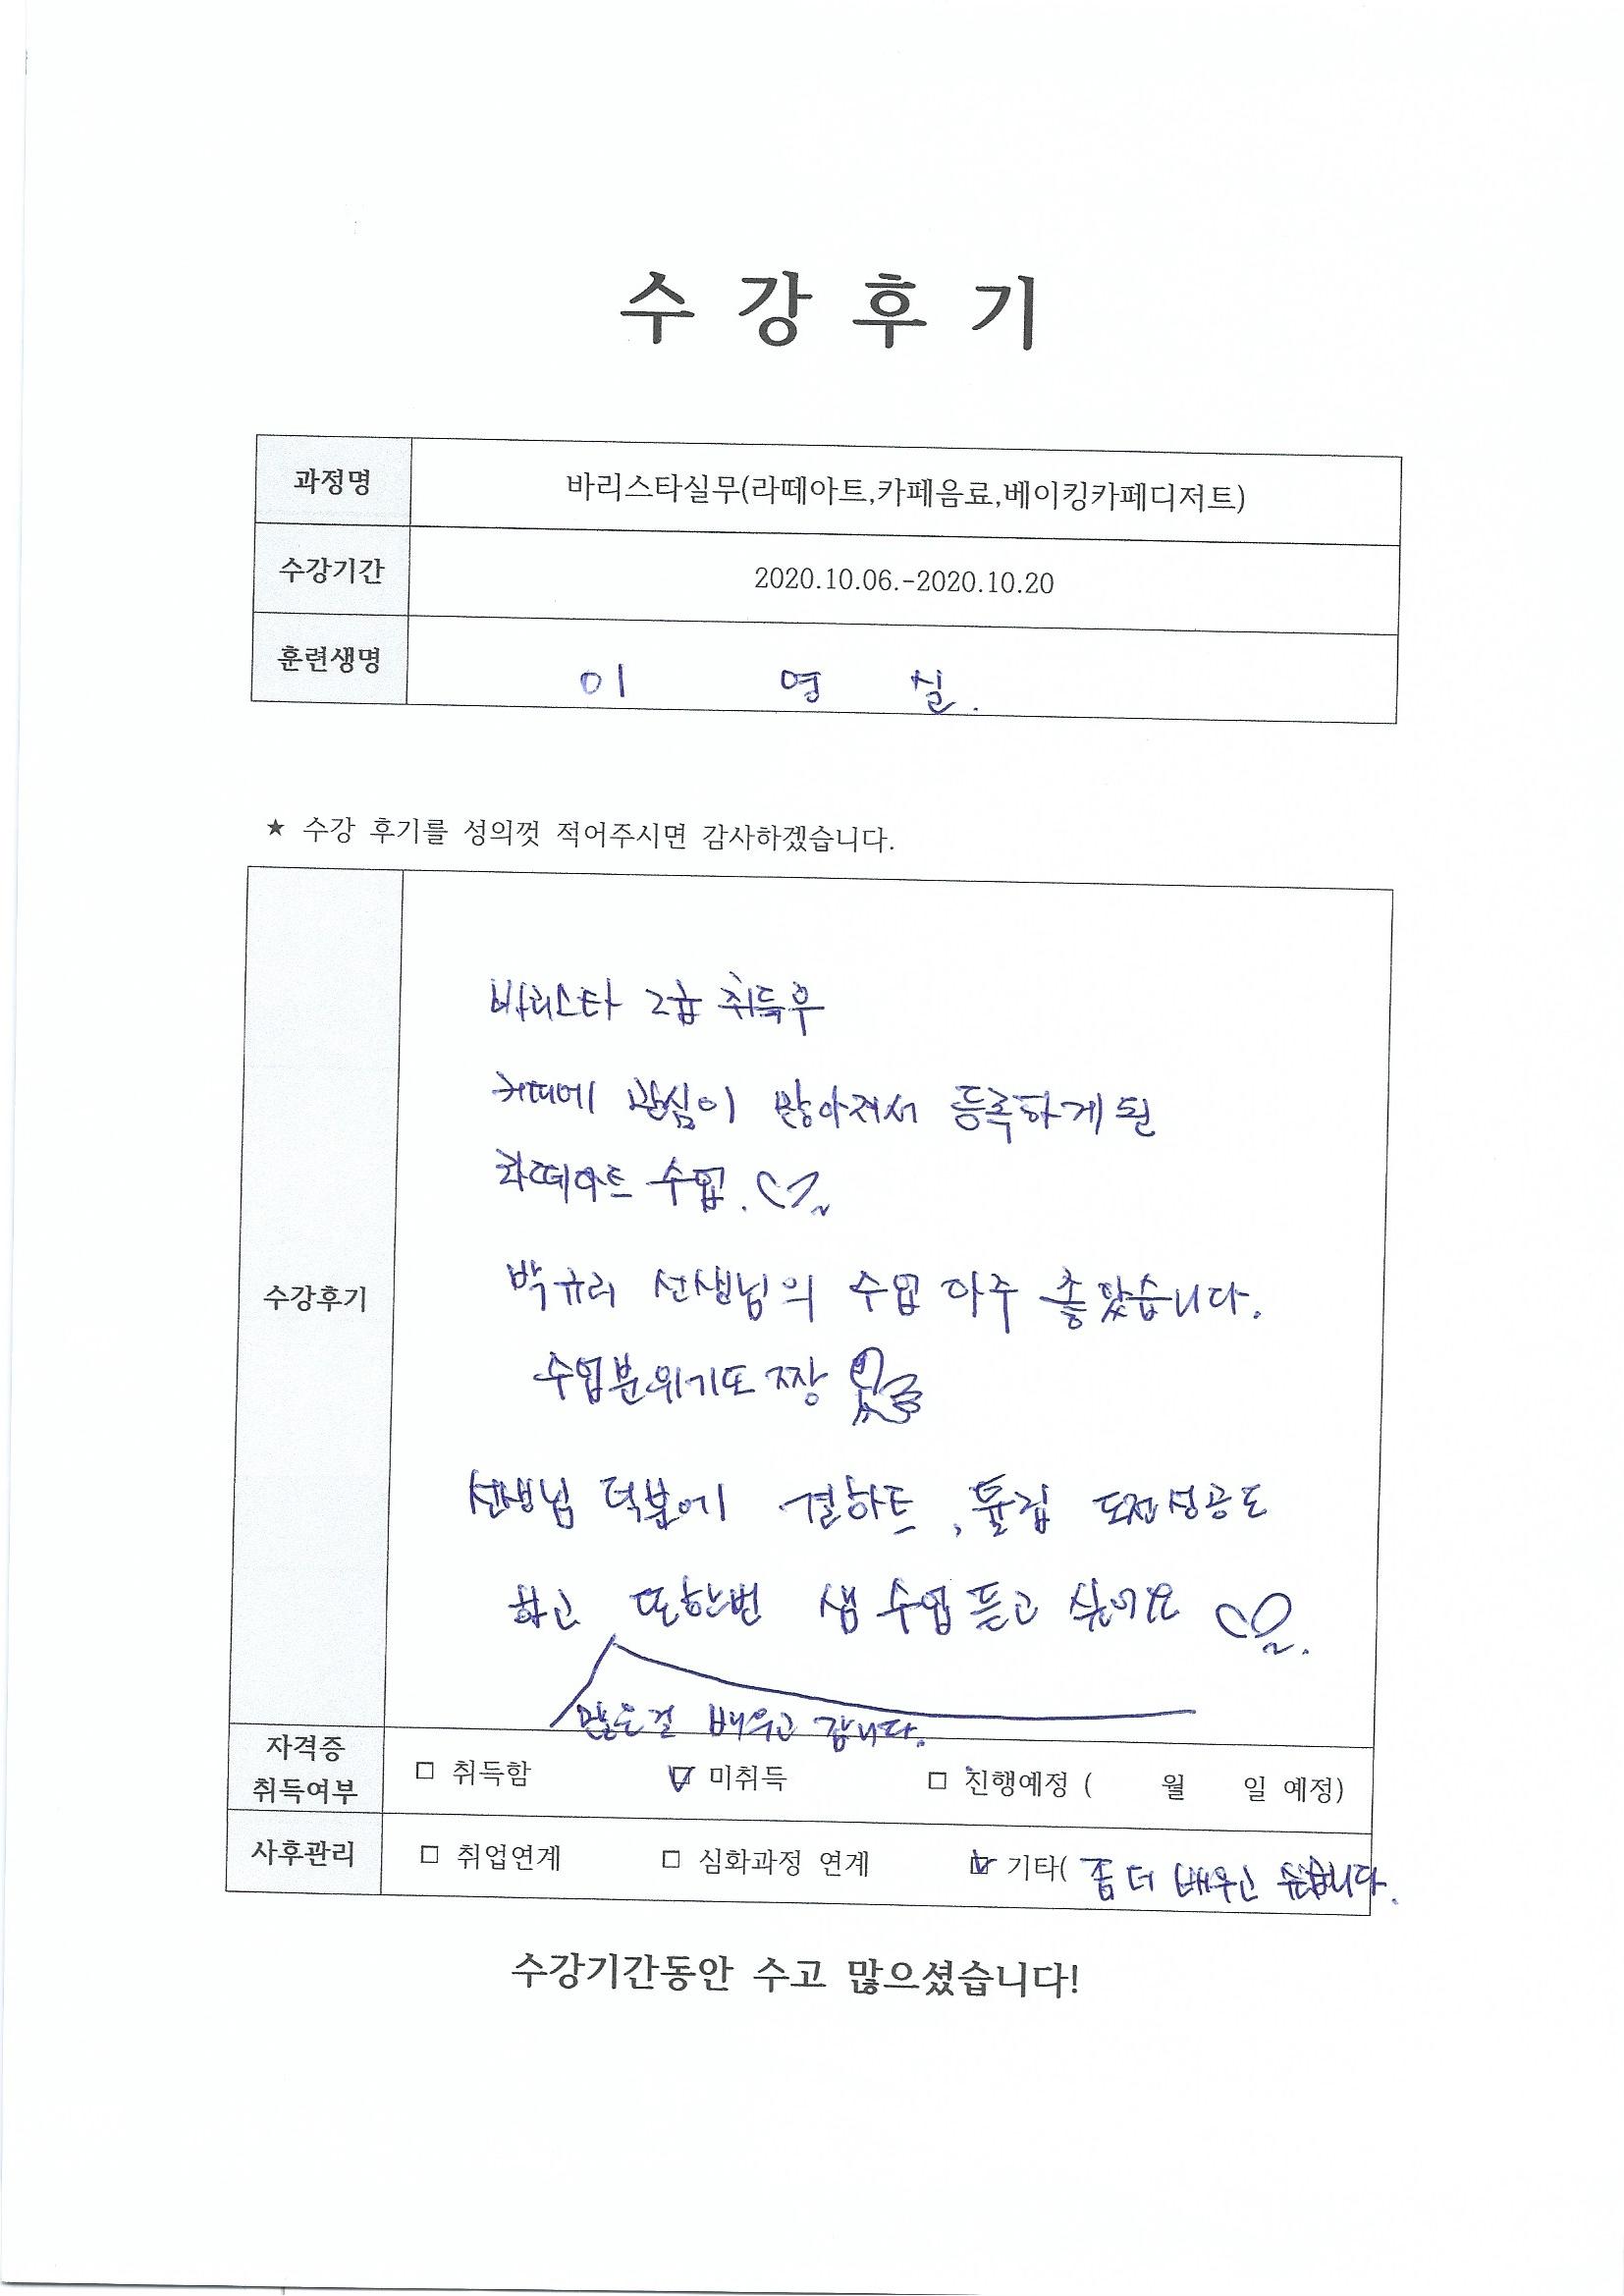 수 강 후 기
과정명 바리스타실무(라떼아트,카페음료,베이킹카페디저트)
수강기간 2020.10.06.-2020.10.20
훈련생명 이 영 실.
★ 수강 후기를 성의껏 적어주시면 감사하겠습니다.
수강후기
바리스타 2급 취득후
커피에 관심이 많아져서 등록하게 된
라떼아트 수업.
박규리 선생님의 수업 아주 좋았습니다.
수업분위기도 짱
선생님 덕분에 결하트, 튤립 도전성공도
하고 또한번 샘 수업 듣고 싶어요
많은걸 배우고 갑니다.
자격증 취득여부 □ 취득함 ☑ 미취득 □ 진행예정 ( 월 일 예정)
사후관리 □ 취업연계 □ 심화과정 연계 ☑ 기타( 좀 더 배우고 싶습니다.
수강기간동안 수고 많으셨습니다!